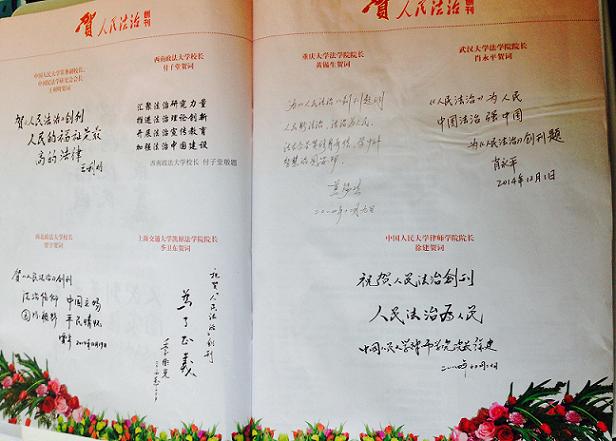 贺人民法治创刊
中国人民大学常务副校长、
中国民法学研究会会长
王利明贺词
贺《人民法治》创刊
人民的福祉是最
高的法律
王利明
西南政法大学校长
付子堂贺词
汇聚法治研究力量
推进法治理论创新
开展法治宣传教育
加强法治中国建设
西南政法大学校长 付子堂敬题
西北政法大学校长
贾宇贺词
贺《人民法治》创刊
法治信仰 中国立场
国际视野 平民情怀
贾宇
上海交通大学凯原法学院院长
季卫东贺词
祝贺《人民法治》创刊
养了正义
季卫东
贺人民法治创刊
重庆大学法学院院长
黄锡生贺词
为《人民法治》创刊题词
黄锡生
武汉大学法学院院长
肖永平贺词
《人民法治》为人民
中国法治强中国
为《人民法治》创刊题
肖永平
2014年12月1日
中国人民大学律师学院院长
徐建贺词
祝贺人民法治创刊
人民法治为人民
中国人民大学律师学院院长徐建